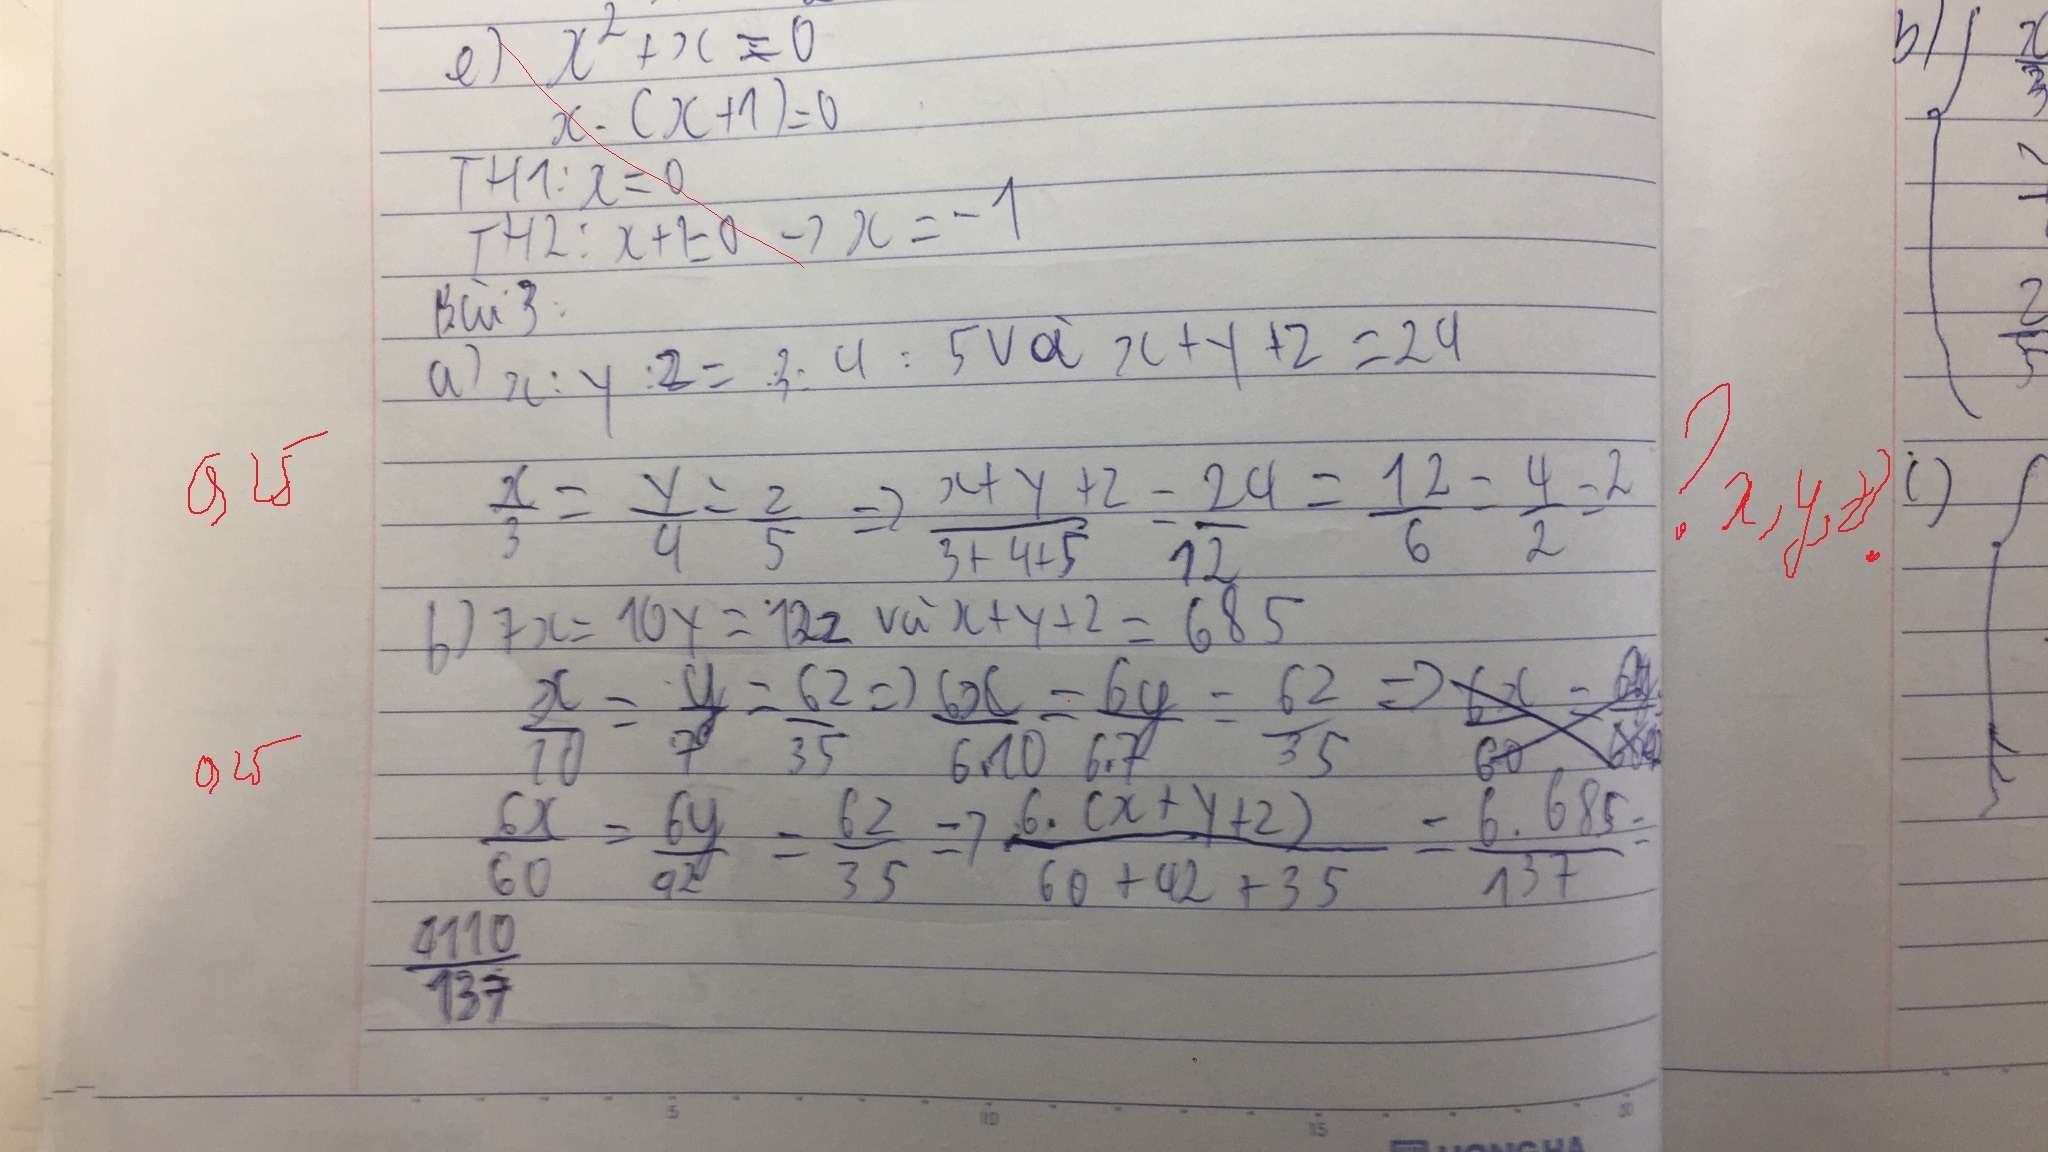 e) x² + x = 0
x. (x+1)=0
TH1: x=0
TH2: x+1=0 -> x = -1
Bài 3:
a) x: y :z = 3: 4 : 5 và x+y+z =24
0,25
x/3 = y/4 = z/5 => (x+y+z)/(3+4+5) = 24/12 = 12/6 = 4/2 = 2
? x, y, z?
b) 7x= 10y = 12z và x+y+z = 685
x/10 = y/7 = 6z/35 => 6x/6.10 = 6y/6.7 = 6z/35 =>
0,25
6x/60 = 6y/42 = 6z/35 => 6.(x+y+z)/(60+42+35) = 6.685/137 =
4110/137
b)
x/3
2/5
c)
5 10 15 20
HONGHA